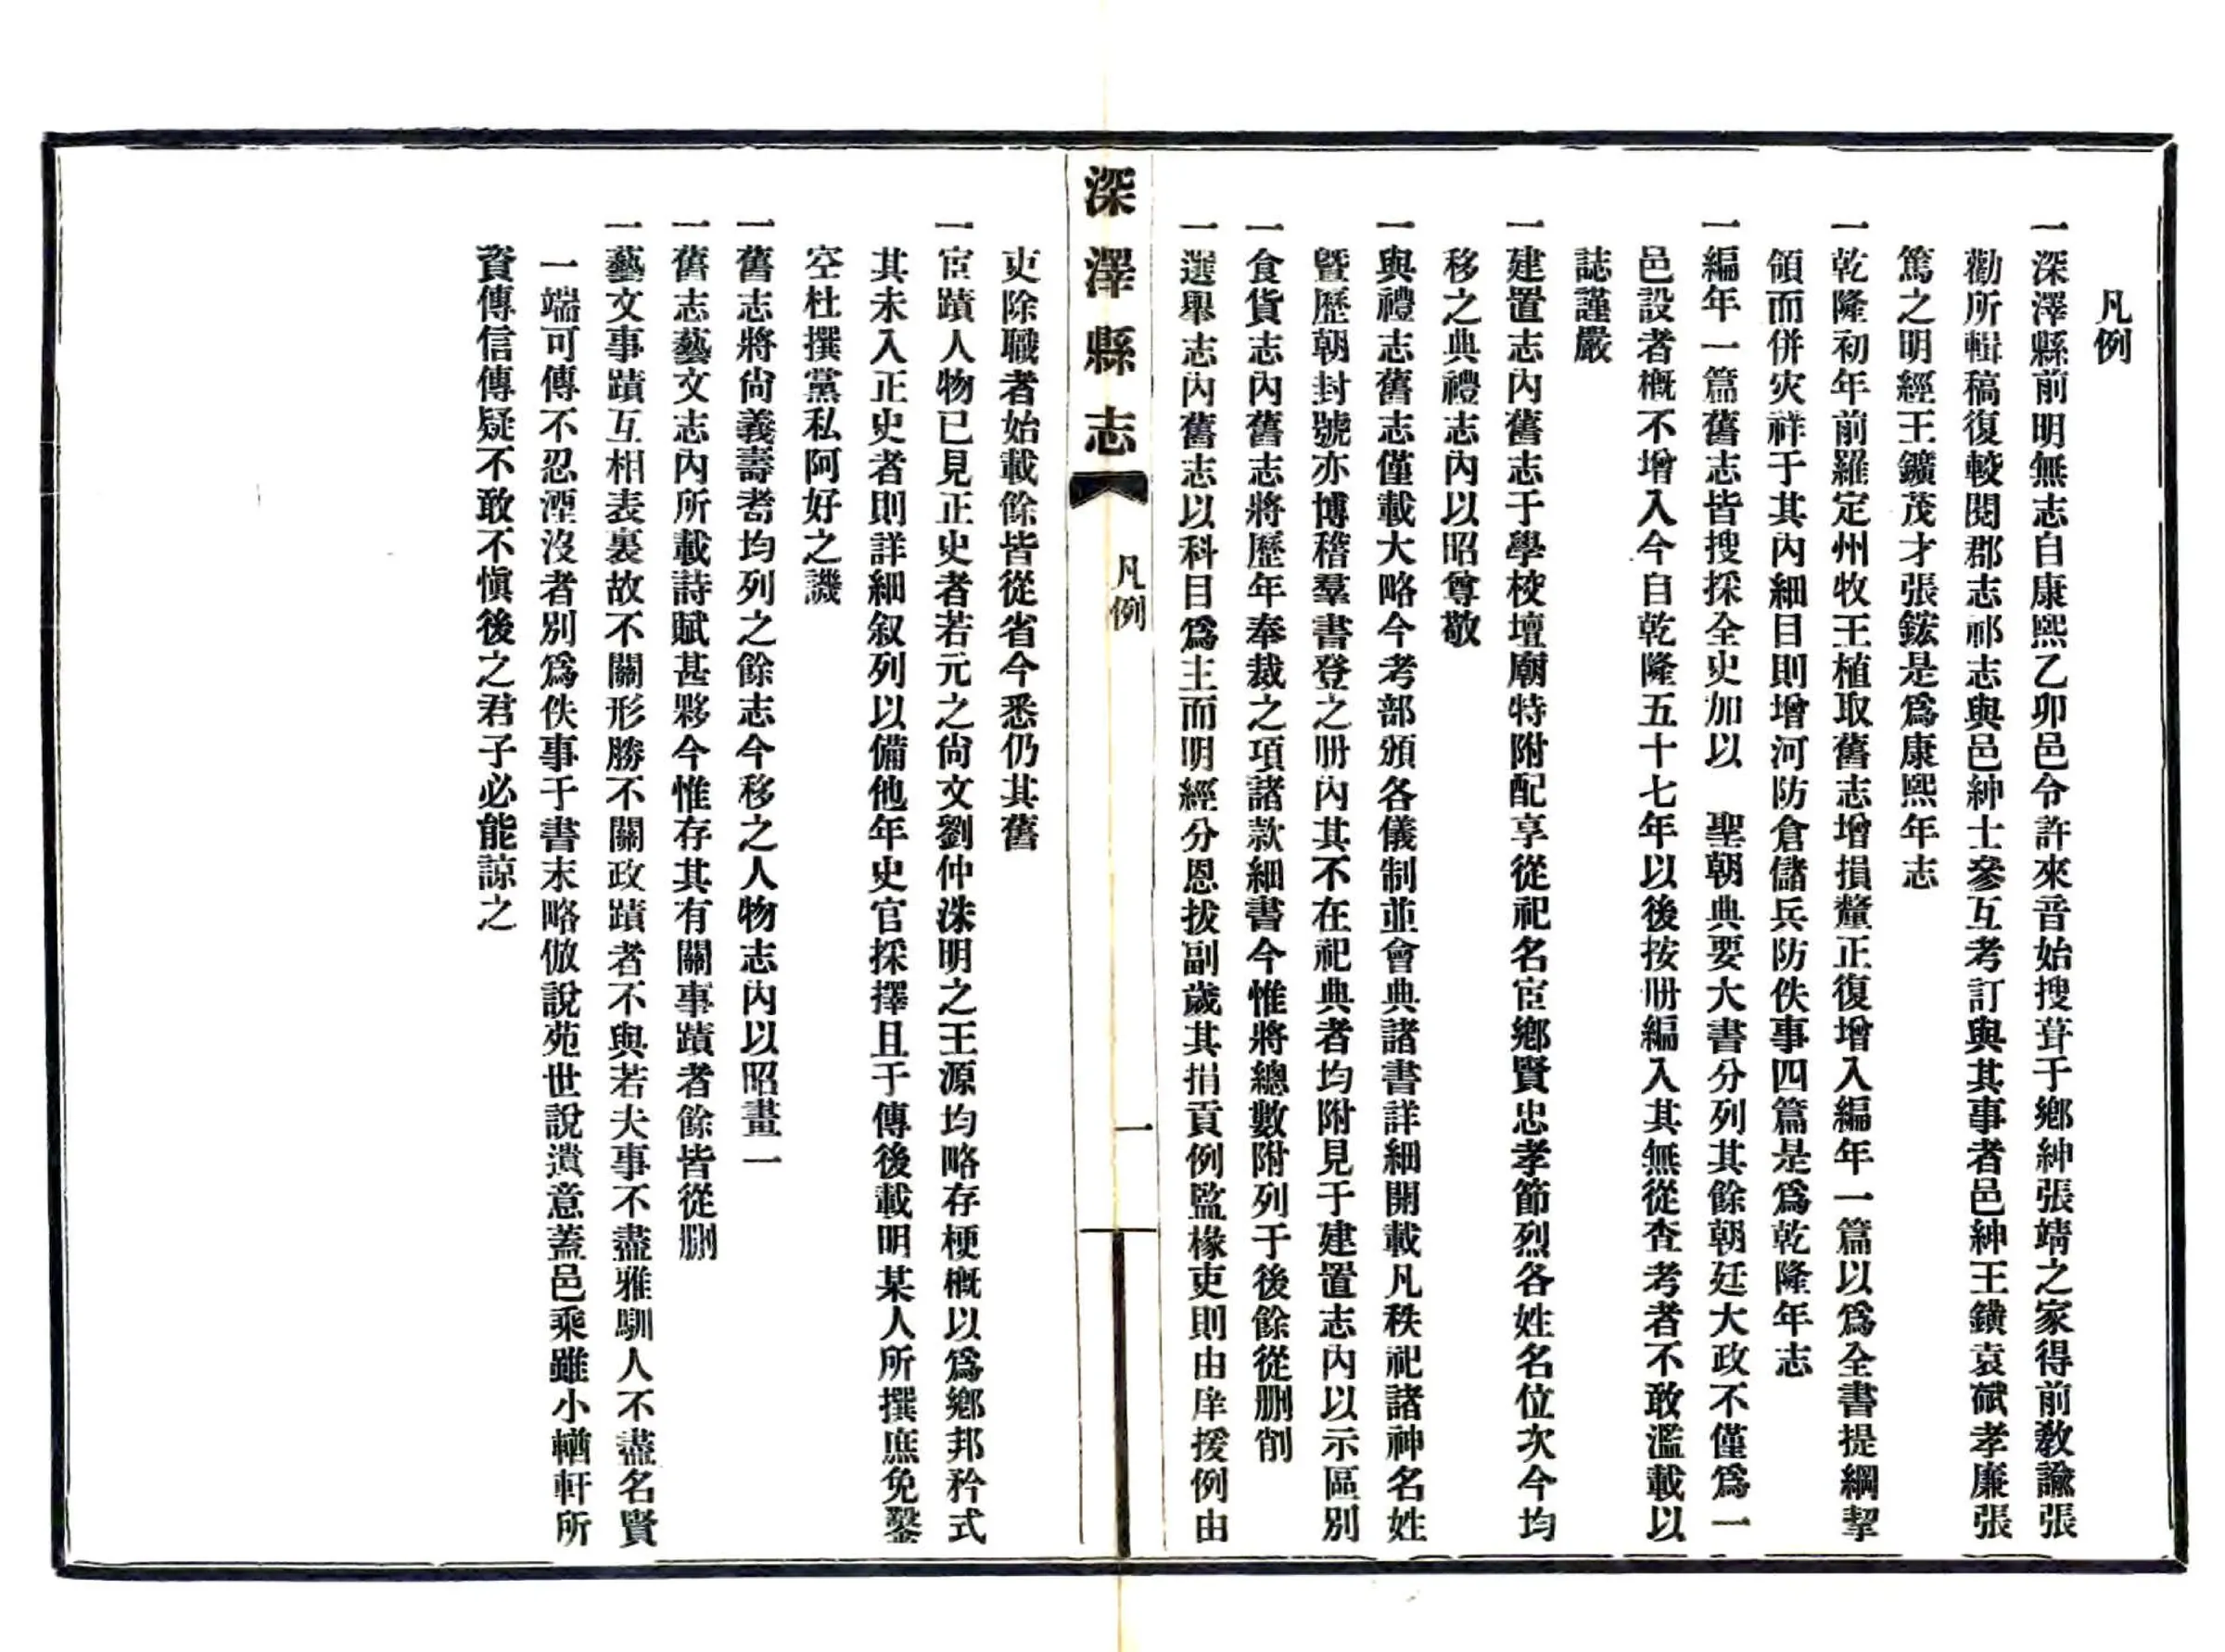 凡例
一深澤縣前明無志自康熙乙卯邑令許來音始搜葺于鄉紳張靖之家得前敎諭張
勸所輯稿復較閱郡志祁志與邑紳士參互考訂與其事者邑紳王鐄袁斌孝廉張
篤之明經王鑛茂才張鋐是爲康熙年志
一乾隆初年前羅定州牧王植取舊志增損釐正復增入編年一篇以爲全書提綱挈
領而併灾祥于其內細目則增河防倉儲兵防佚事四篇是爲乾隆年志
一編年一篇舊志皆搜採全史加以　聖朝典要大書分列其餘朝廷大政不僅爲一
邑設者槪不增入今自乾隆五十七年以後按册編入其無從查考者不敢濫載以
誌謹嚴
一建置志內舊志于學校壇廟特附配享從祀名宦鄉賢忠孝節烈各姓名位次今均
移之典禮志內以昭尊敬
一典禮志舊志僅載大略今考部頒各儀制並會典諸書詳細開載凡秩祀諸神名姓
曁歷朝封號亦博稽羣書登之册內其不在祀典者均附見于建置志內以示區別
一食貨志內舊志將歷年奉裁之項諸款細書今惟將總數附列于後餘從删削
一選舉志內舊志以科目爲主而明經分恩拔副歲其捐貢例監椽吏則由庠援例由
深澤縣志
凡例
一
吏除職者始載餘皆從省今悉仍其舊
一宦蹟人物已見正史者若元之尙文劉仲洙明之王源均略存梗槪以爲鄉邦矜式
其未入正史者則詳細叙列以備他年史官採擇且于傳後載明某人所撰庶免鑿
空杜撰黨私阿好之譏
一舊志將尙義壽耆均列之餘志今移之人物志內以昭畫一
一舊志藝文志內所載詩賦甚夥今惟存其有關事蹟者餘皆從删
一藝文事蹟互相表裏故不關形勝不關政蹟者不與若夫事不盡雅馴人不盡名賢
一端可傳不忍湮沒者別爲佚事于書末略倣說苑世說遺意蓋邑乘雖小輶軒所
資傳信傳疑不敢不愼後之君子必能諒之